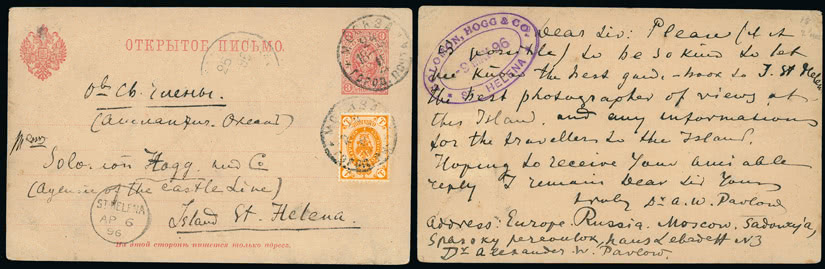 ОТКРЫТОЕ ПИСЬМО.
МОСКВА
МОСКВА
(Атлантич. Океанъ)
Solomon Hogg and C
(Agence of the Castle Line)
Island St. Helena.
ST HELENA
AP 6
96
На этой сторонѣ пишется только адресъ.
SOLOMON, HOGG & CO.
96
ST HELENA
Dear Sir: Please (if it
is possible) to be so kind to let
me know the best guide-book to I. St Helena
the best photographer of views at
this Island, and any informations
for the traveller to the Island.
Hoping to receive Your amiable
reply I remain Dear Sir Yours
truly Dr A. W. Pawlow
Address: Europe. Russia. Moscow. Sadowaja,
Spassky pereoulok, haus Lebedeff N3
Dr Alexander W. Pawlow.